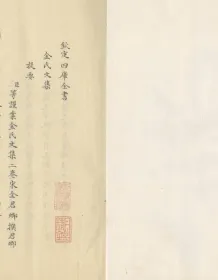 欽定四庫全書
金氏文集
提要
臣等謹案金氏文集二卷宋金君卿撰君卿